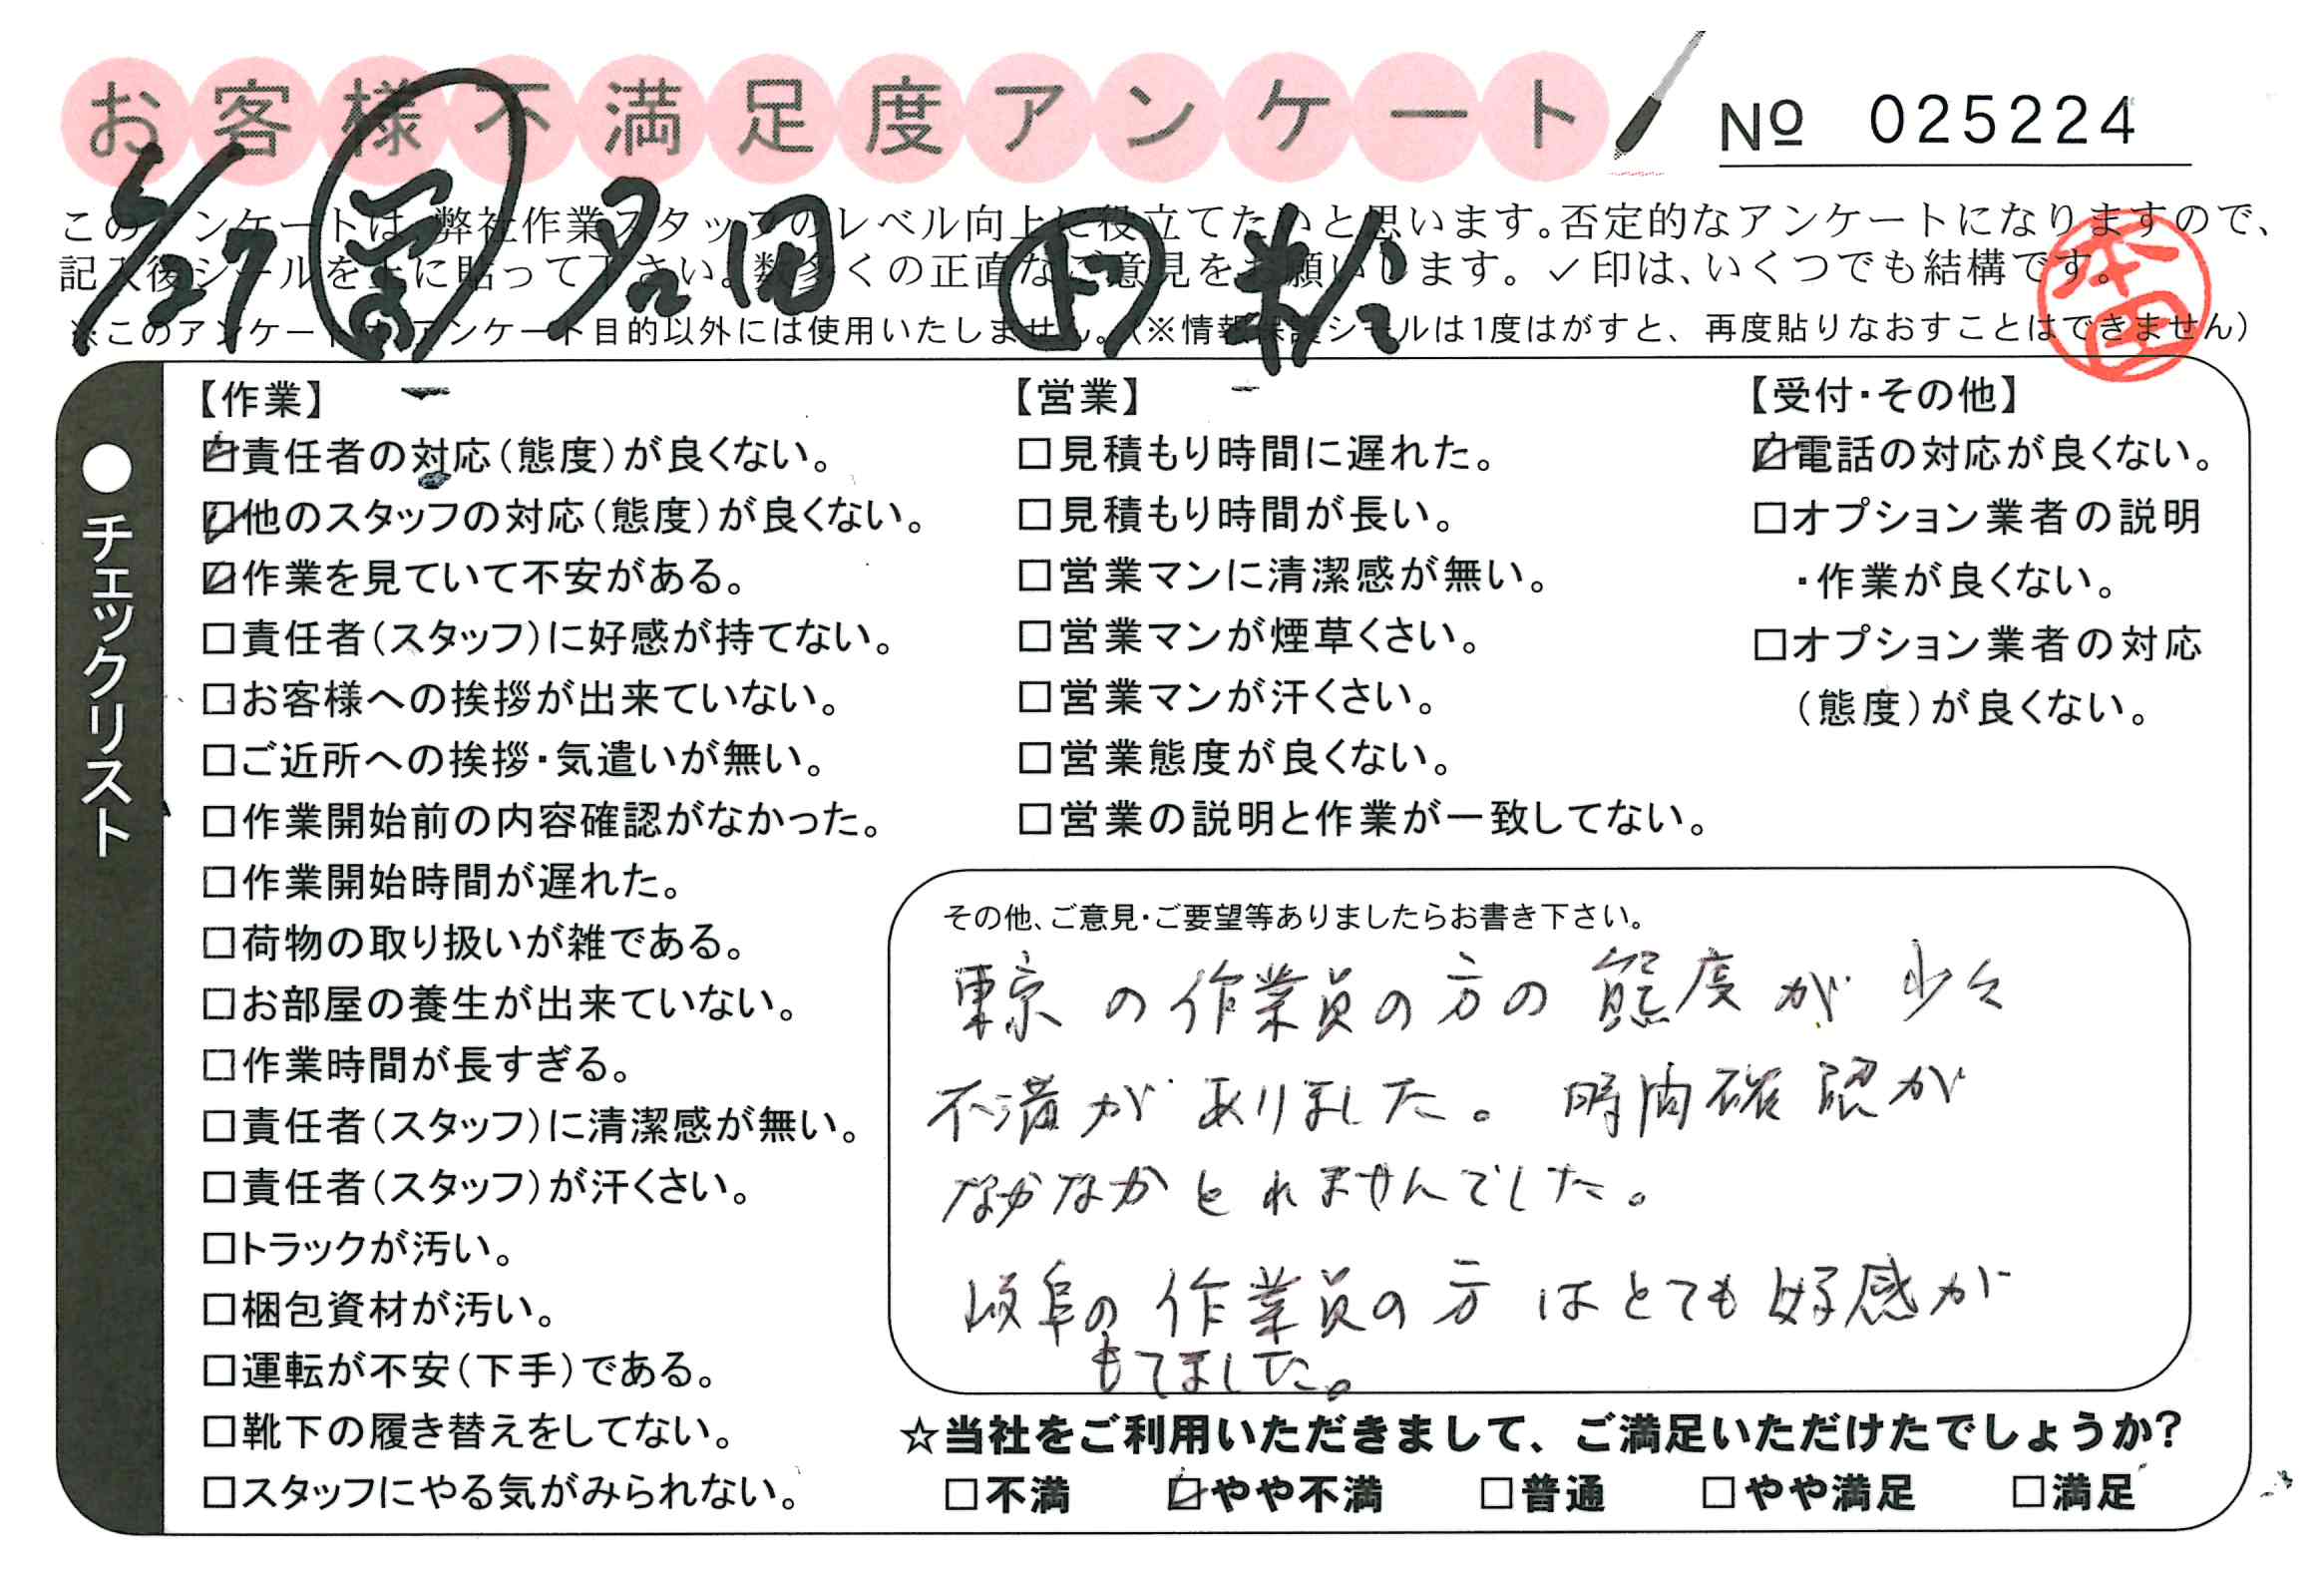 お客様不満足度アンケート
No 025224
このアンケートは、弊社作業スタッフのレベル向上に役立てたいと思います。否定的なアンケートになりますので、
記入後シールを上に貼って下さい。数多くの正直なご意見をお願いします。✓印は、いくつでも結構です。
※このアンケートは、アンケート目的以外には使用いたしません。(※情報保護シールは1度はがすと、再度貼りなおすことはできません)
/27
本田
●チェックリスト
【作業】
☑責任者の対応(態度)が良くない。
☑他のスタッフの対応(態度)が良くない。
☑作業を見ていて不安がある。
□責任者(スタッフ)に好感が持てない。
□お客様への挨拶が出来ていない。
□ご近所への挨拶・気遣いが無い。
□作業開始前の内容確認がなかった。
□作業開始時間が遅れた。
□荷物の取り扱いが雑である。
□お部屋の養生が出来ていない。
□作業時間が長すぎる。
□責任者(スタッフ)に清潔感が無い。
□責任者(スタッフ)が汗くさい。
□トラックが汚い。
□梱包資材が汚い。
□運転が不安(下手)である。
□靴下の履き替えをしてない。
□スタッフにやる気がみられない。
【営業】
□見積もり時間に遅れた。
□見積もり時間が長い。
□営業マンに清潔感が無い。
□営業マンが煙草くさい。
□営業マンが汗くさい。
□営業態度が良くない。
□営業の説明と作業が一致してない。
【受付・その他】
☑電話の対応が良くない。
□オプション業者の説明
・作業が良くない。
□オプション業者の対応
(態度)が良くない。
その他、ご意見・ご要望等ありましたらお書き下さい。
東京の作業員の方の態度が少々
不満がありました。時間確認が
なかなかとれませんでした。
岐阜の作業員の方はとても好感が
もてました。
☆当社をご利用いただきまして、ご満足いただけたでしょうか?
□不満 ☑やや不満 □普通 □やや満足 □満足